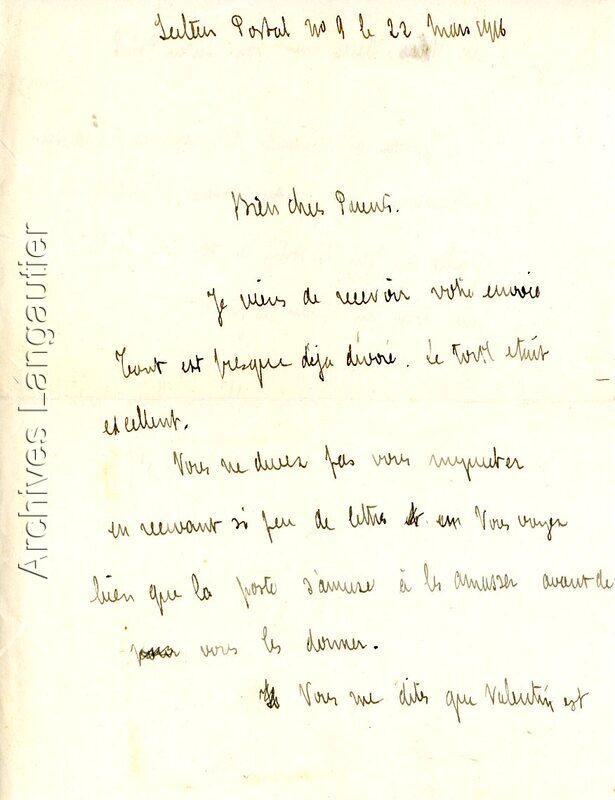 Secteur Postal no 9 le 22 Mars 1916
Bien chers Parents.
Je viens de recevoir votre envoie
Tout est presque déja dévoré. Le tout etait
excellent.
Vous ne devez pas vous inquieter
en recevant si peu de lettres Vous voyez
bien que la poste s'amuse à les amasser avant de
vous les donner.
Vous me dites que Valentin est
Archives Langautier